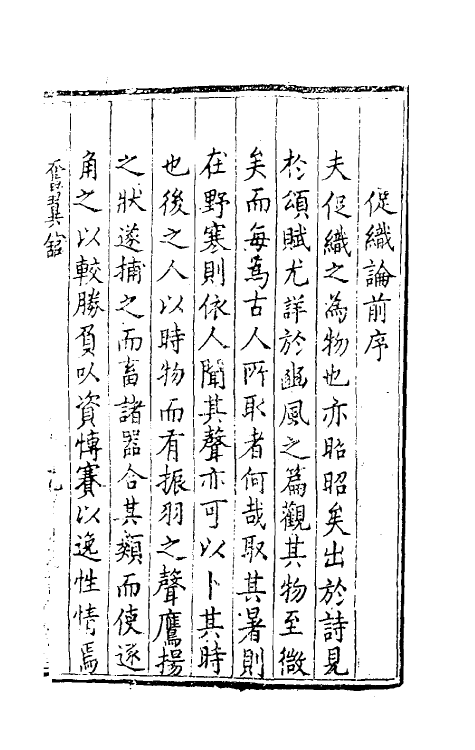 促織論前序
夫促織之為物也亦昭昭矣出於詩見
於頌賦尤詳於豳風之篇觀其物至微
矣而每為古人所取者何哉取其暑則
在野寒則依人聞其聲亦可以卜其時
也後之人以時物而有振羽之聲鷹揚
之狀遂捕之而畜諸器合其類而使逐
角之以較勝負以資慱賽以逸性情焉